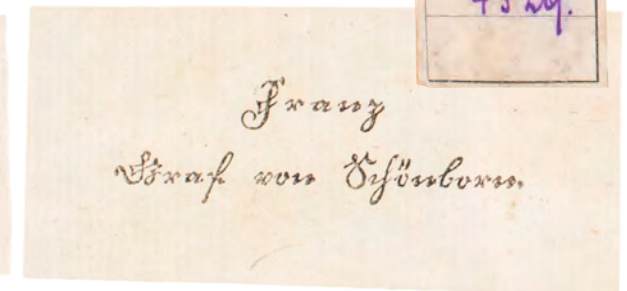 Franz
Graf von Schönborn.